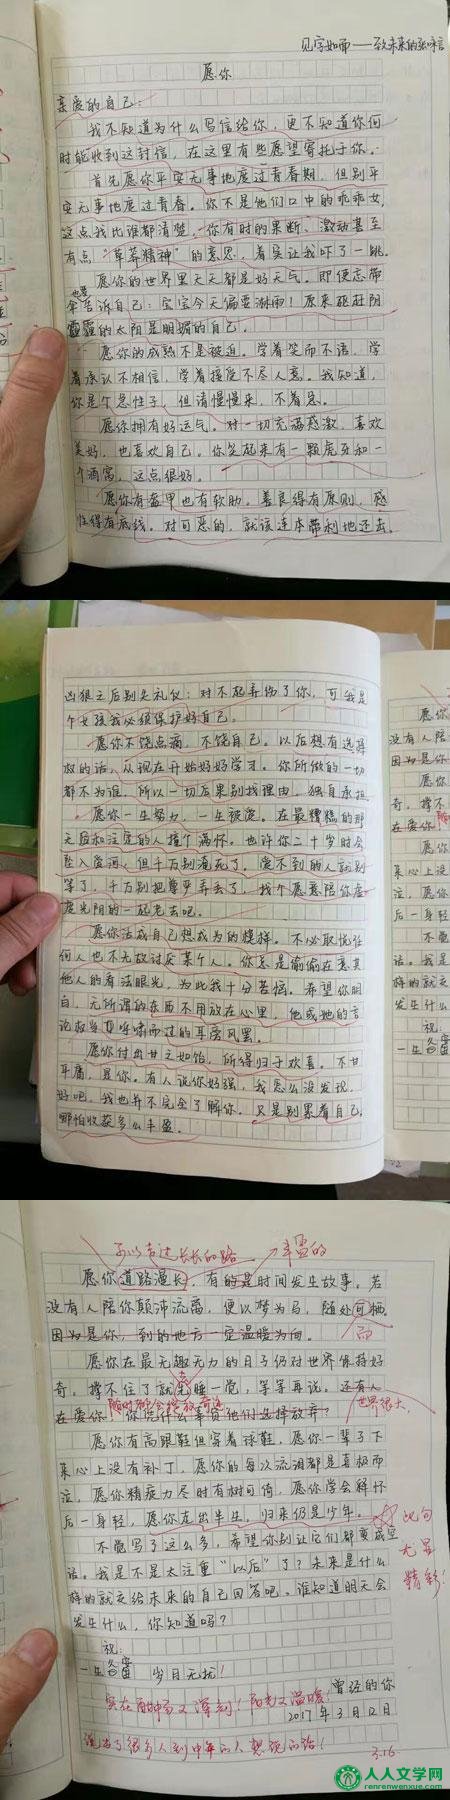 见字如面——致未来的张味言
愿你
亲爱的自己：
我不知道为什么写信给你，更不知道你何
时能收到这封信，在这里有些愿望寄托于你。
首先愿你平安无事地度过青春期，但别平
安无事地度过青春。你不是他们口中的乖乖女，
这点我比谁都清楚。你有时的果断、激动甚至
有点“草莽精神”的意思，着实让我吓了一跳。
愿你的世界里天天都是好天气。即使忘带
伞也要告诉自己：宝宝今天偏要淋雨！原来驱赶阴
霾的太阳是明媚的自己。
愿你的成熟不是被迫。学着笑而不语，学
着承认不相信，学着接受不尽人意。我知道，
你是个急性子，但请慢慢来，不着急。
愿你拥有好运气。对一切充满感激，喜欢
美好，也喜欢自己。你笑起来有一颗虎牙和一
个酒窝，这点很好。
愿你有盔甲也有软肋。善良得有原则，感
性得有底线。对可恶的，就该连本带利地还击。
凶狠之后别失礼仪：对不起弄伤了你，可我是
个女孩我必须保护好自己。
愿你不饶点滴，不饶自己。以后想有选择
权的话，从现在开始好好学习。你所做的一切
都不为谁，所以一切后果别找理由，独自承担。
愿你一生努力，一生被爱。在最糟糕的那
天因和注定的人撞个满怀。也许你二十岁时会
坠入爱河，但千万别淹死了。爱不到的人就别
等了，千万别把尊严弄丢了，找个愿意陪你虚
度光阴的一起老去吧。
愿你活成自己想成为的模样。不必取悦任
何人也不无故讨厌某个人。你总是偷偷在意其
他人的看法眼光，为此我十分苦恼。希望你明
白，无所谓的东西不用放在心里，他或她的言
论权当是呼啸而过的耳旁风罢。
愿你付出甘之如饴，所得归于欢喜。不甘
平庸，是你。有人说你好强，我怎么没发现。
好吧，我也并不完全了解你。只是别累着自己，
哪怕收获多么丰盈。
可以走过长长的路
丰盈的
愿你道路漫长，有的是时间发生故事。若
没有人陪你颠沛流离，便以梦为马，随处可栖。
而
因为是你，到的地方一定温暖为向。
愿你在最无趣无力的日子仍对世界保持好
奇。撑不住了就去睡一觉，等等再说。还有人
随时都会绽放奇迹
世界很大，
在爱你，你凭什么辜负他们选择放弃？
愿你有高跟鞋但穿着球鞋，愿你一辈子下
来心上没有补丁，愿你的每次流泪都是喜极而
泣，愿你精疲力尽时有树可倚，愿你学会释怀
后一身轻，愿你走出半生，归来仍是少年。
此句尤显精彩！
不觉写了这么多，希望你别让它们都变成空
话。我是不是太注重“以后”了？未来是什么
样的就交给未来的自己回答吧。谁知道明天会
发生什么，你知道吗？
祝：
一生备蜜 岁月无扰！
曾经的你
2017年3月12日
3.16
人人文学网
renrenwenxue.com